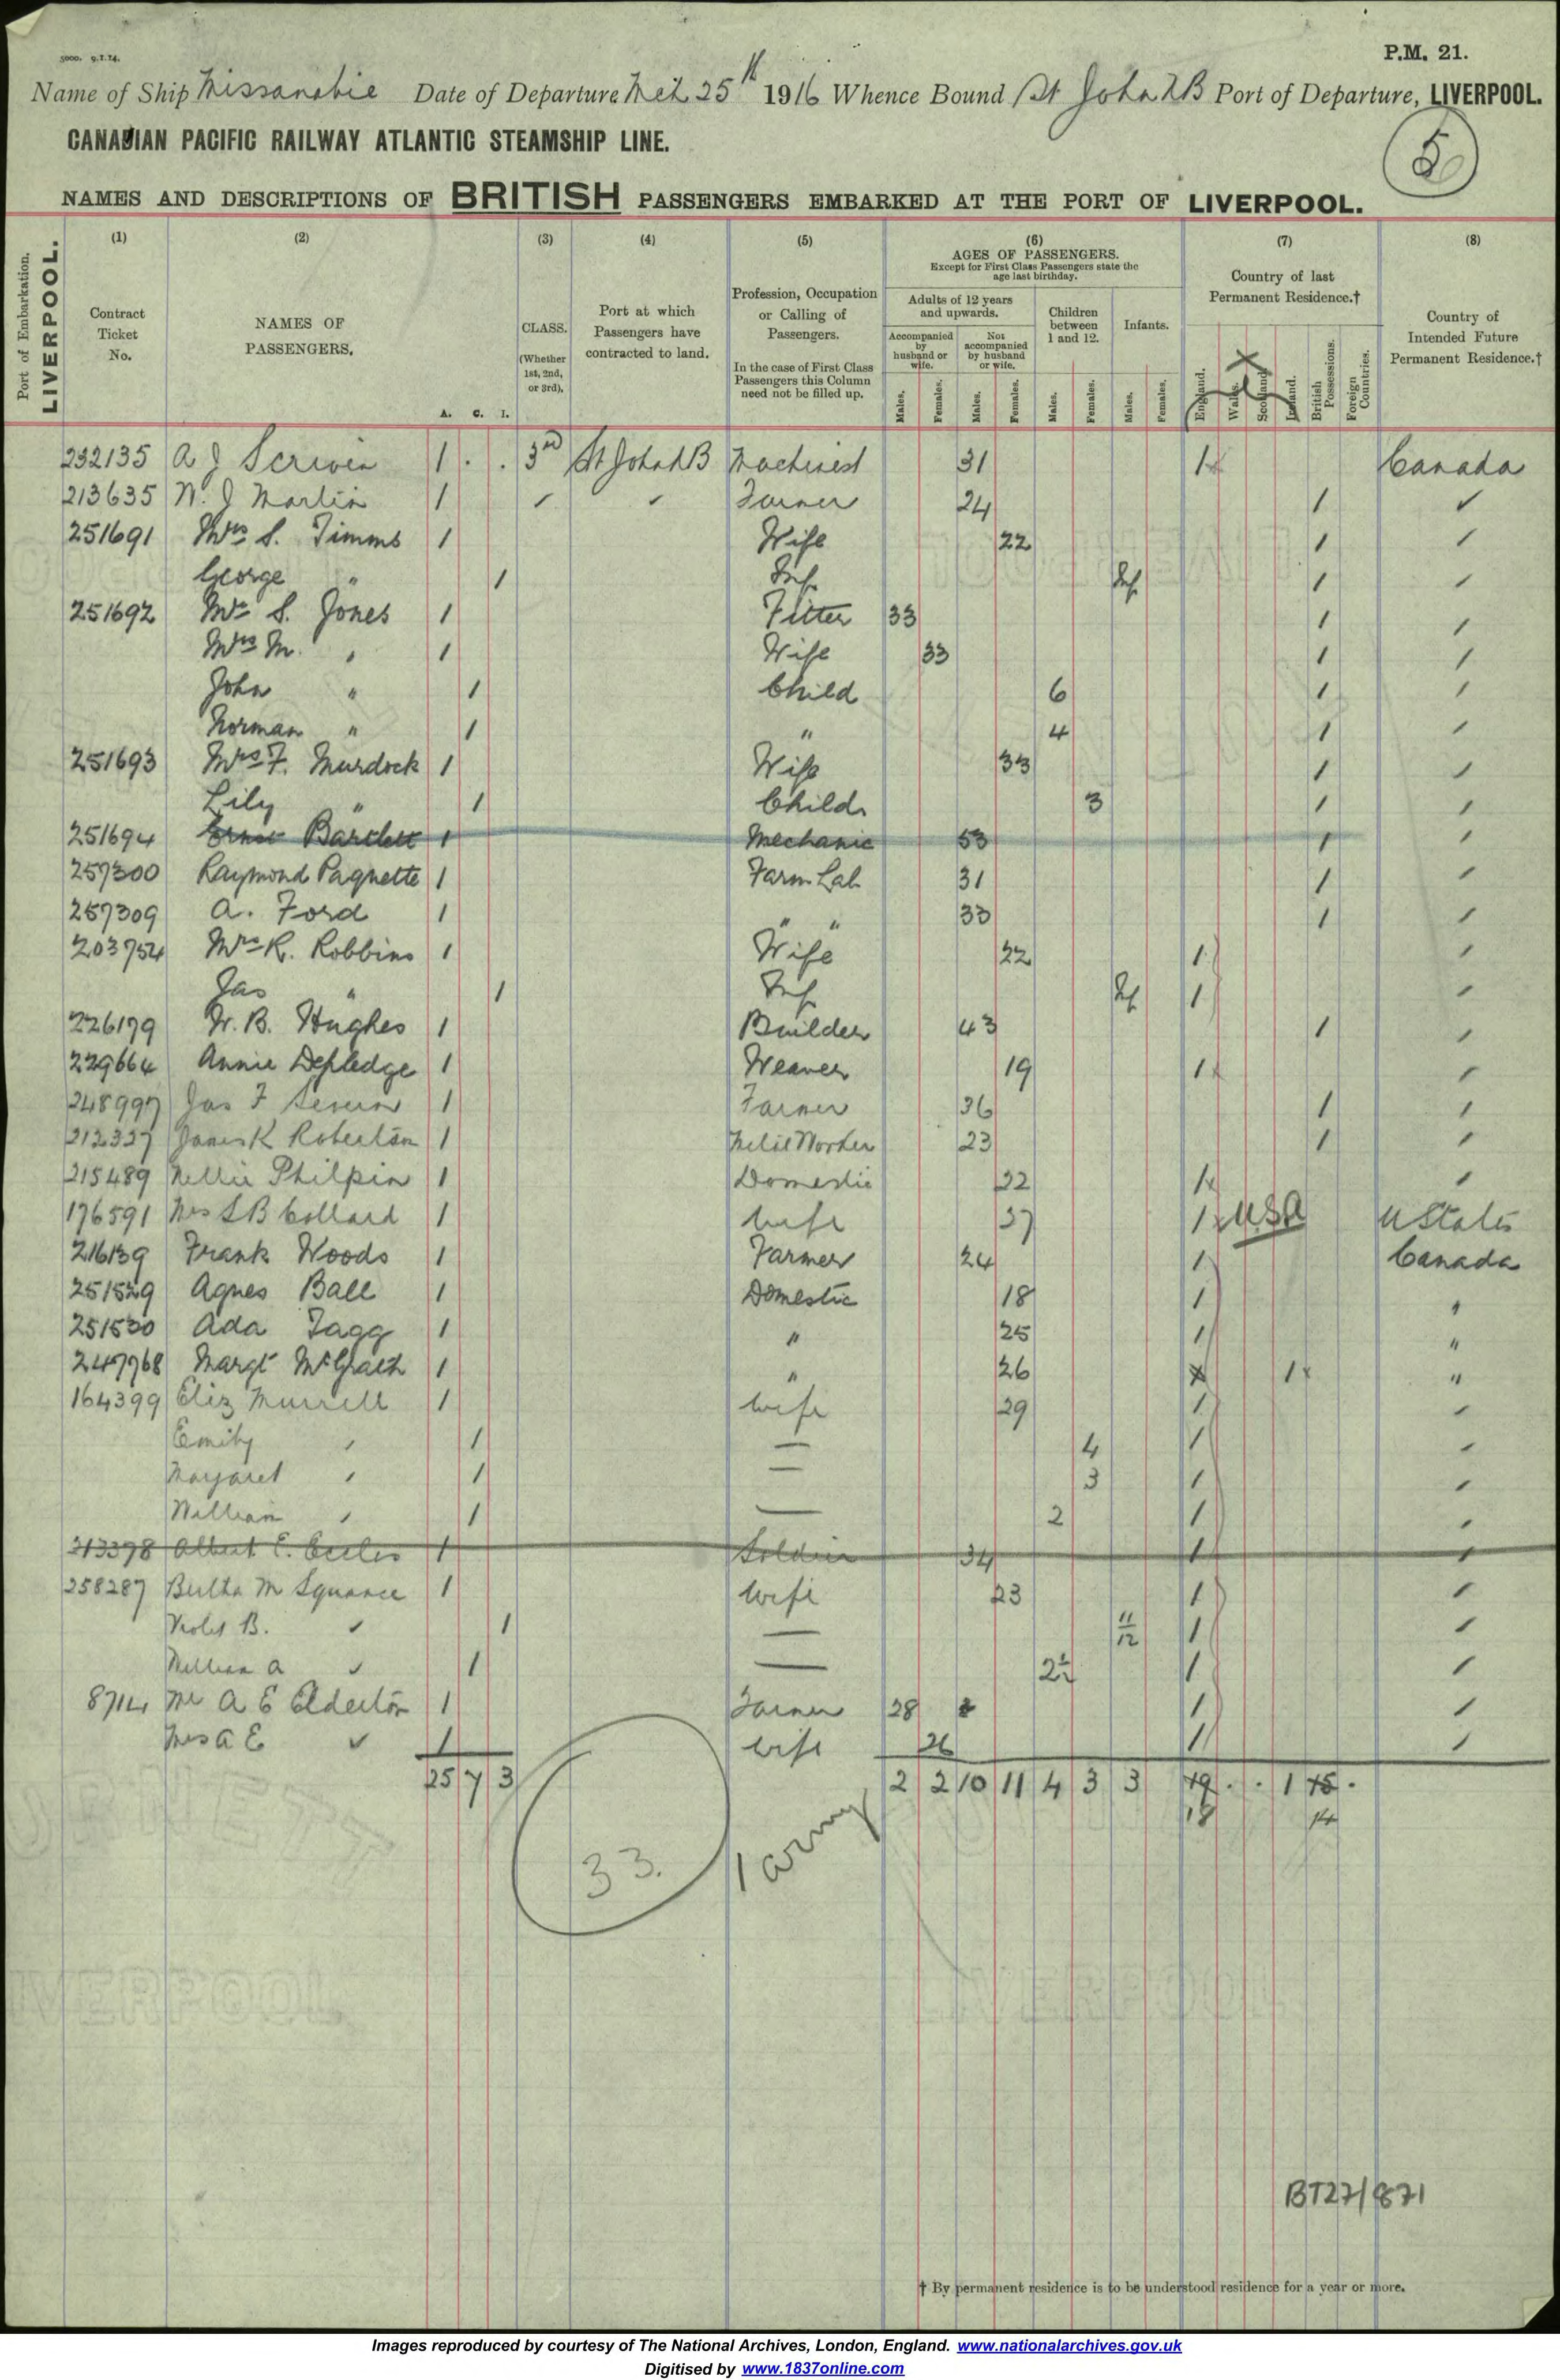 5000. 9.1.14.
P.M. 21.
Name of Ship Missanabie Date of Departure Mch 25th 1916 Whence Bound St John NB Port of Departure, LIVERPOOL.
CANADIAN PACIFIC RAILWAY ATLANTIC STEAMSHIP LINE.
5
NAMES AND DESCRIPTIONS OF BRITISH PASSENGERS EMBARKED AT THE PORT OF LIVERPOOL.
Port of Embarkation. LIVERPOOL.
(1) Contract Ticket No.
(2) NAMES OF PASSENGERS. A. C. I.
(3) CLASS. (Whether 1st, 2nd, or 3rd).
(4) Port at which Passengers have contracted to land.
(5) Profession, Occupation or Calling of Passengers. In the case of First Class Passengers this Column need not be filled up.
(6) AGES OF PASSENGERS. Except for First Class Passengers state the age last birthday.
Adults of 12 years and upwards. Children between 1 and 12. Infants.
Accompanied by husband or wife. Not accompanied by husband or wife.
Males. Females. Males. Females. Males. Females. Males. Females.
(7) Country of last Permanent Residence.†
England. Wales. Scotland. Ireland. British Possessions. Foreign Countries.
(8) Country of Intended Future Permanent Residence.†
232135 A J Scriven 1 . . 3rd St John NB Machinist 31 1x Canada
213635 W. J Martin 1 ✓ ✓ Farmer 24 1 ✓
251691 Mrs S. Timms 1 Wife 22 1 /
George " 1 Inf Inf 1 /
251692 Mr S. Jones 1 Fitter 33 1 /
Mrs M. " 1 Wife 33 1 /
John " 1 Child 6 1 /
Norman " 1 " 4 1 /
251693 Mrs F. Murdock 1 Wife 33 1 /
Lily " 1 Child 3 1 /
251694 Ernest Bartlett 1 Mechanic 53 1 /
257300 Raymond Paquette 1 Farm Lab 31 1 /
257309 A. Ford 1 " " 33 1 /
203754 Mrs R. Robbins 1 Wife 22 1 /
Jas " 1 Inf Inf 1 /
226179 W. B. Hughes 1 Builder 43 1 /
229664 Annie Depledge 1 Weaver 19 1x /
248997 Jas F 1 Farmer 36 1 /
212327 James K Robertson 1 Worker 23 1 /
215489 Nellie Philpin 1 Domestic 22 1x /
176591 Mrs S B Collard 1 Wife 37 1x USA U States
216139 Frank Woods 1 Farmer 24 1 Canada
251529 Agnes Ball 1 Domestic 18 1 "
251530 Ada Tagg 1 " 25 1 "
247768 Margt McGrath 1 " 26 x 1x "
164399 Eliz Murrell 1 Wife 29 1 /
Emily " 1 — 4 1 /
Margaret " 1 — 3 1 /
William " 1 — 2 1 /
213398 Albert E. Eccles 1 Soldier 34 1 /
258287 Bertha M Squance 1 Wife 23 1 /
Violet B. ✓ 1 — 11/12 1 /
William A ✓ 1 — 2½ 1 /
8714 Mr A E Elderton 1 Farmer 28 1 /
Mrs A E ✓ 1 Wife 26 1 /
25 7 3 2 2 10 11 4 3 3 19 . . 1 15 .
18 14
33.
1 army
BT27/871
† By permanent residence is to be understood residence for a year or more.
Images reproduced by courtesy of The National Archives, London, England. www.nationalarchives.gov.uk
Digitised by www.1837online.com